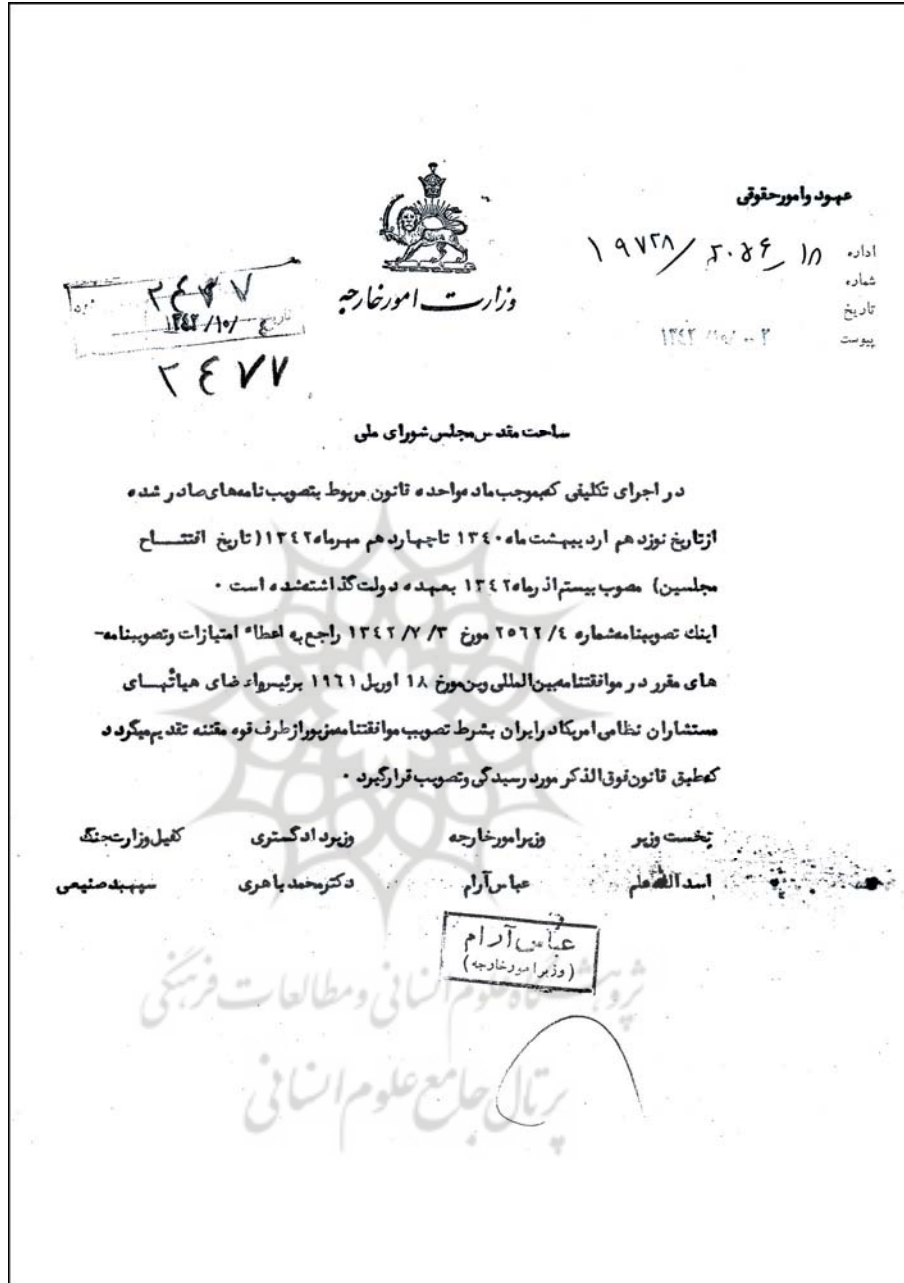 عهود وامورحقوقی
اداره ۱۹۷۲۸/۲۰۵۶-۱۸
شماره
تاریخ
پیوست ۱۳۴۲/۱۰/۰۰۲
وزارت امورخارجه
۲٤۷۷
تاریخ ۱۳٤۲/۱۰/
۲٤۷۷
ساحت مقدس مجلس شورای ملی
در اجرای تکلیفی که بموجب ماده واحده قانون مربوط بتصویب نامه های صادر شده
ازتاریخ نوزدهم اردیبهشت ماه ۱۳٤۰ تاچهاردهم مهرماه ۱۳٤۲ (تاریخ افتتــاح
مجلسین) مصوب بیستم آذرماه ۱۳٤۲ بعهده دولت گذاشته شده است ۰
اینك تصویبنامه شماره ۲۵٦۲/٤ مورخ ۱۳٤۲/۷/۳ راجع به اعطاء امتیازات وتصویبنامه-
های مقرر در موافقتنامه بین المللی وین مورخ ۱۸ اوریل ۱۹٦۱ برئیس واعضای هیأتهــای
مستشاران نظامی امریکا در ایران بشرط تصویب موافقتنامه مزبور از طرف قوه مقننه تقدیم میگردد
که طبق قانون فوق الذکر مورد رسیدگی وتصویب قرارگیرد ۰
نخست وزیر وزیرامورخارجه وزیردادگستری کفیل وزارت جنگ
اسدالله علم عباس آرام دکترمحمد باهری سپهبد صنیعی
عباس آرام
(وزیر امورخارجه)
پژوهشگاه علوم انسانی و مطالعات فرهنگی
پرتال جامع علوم انسانی